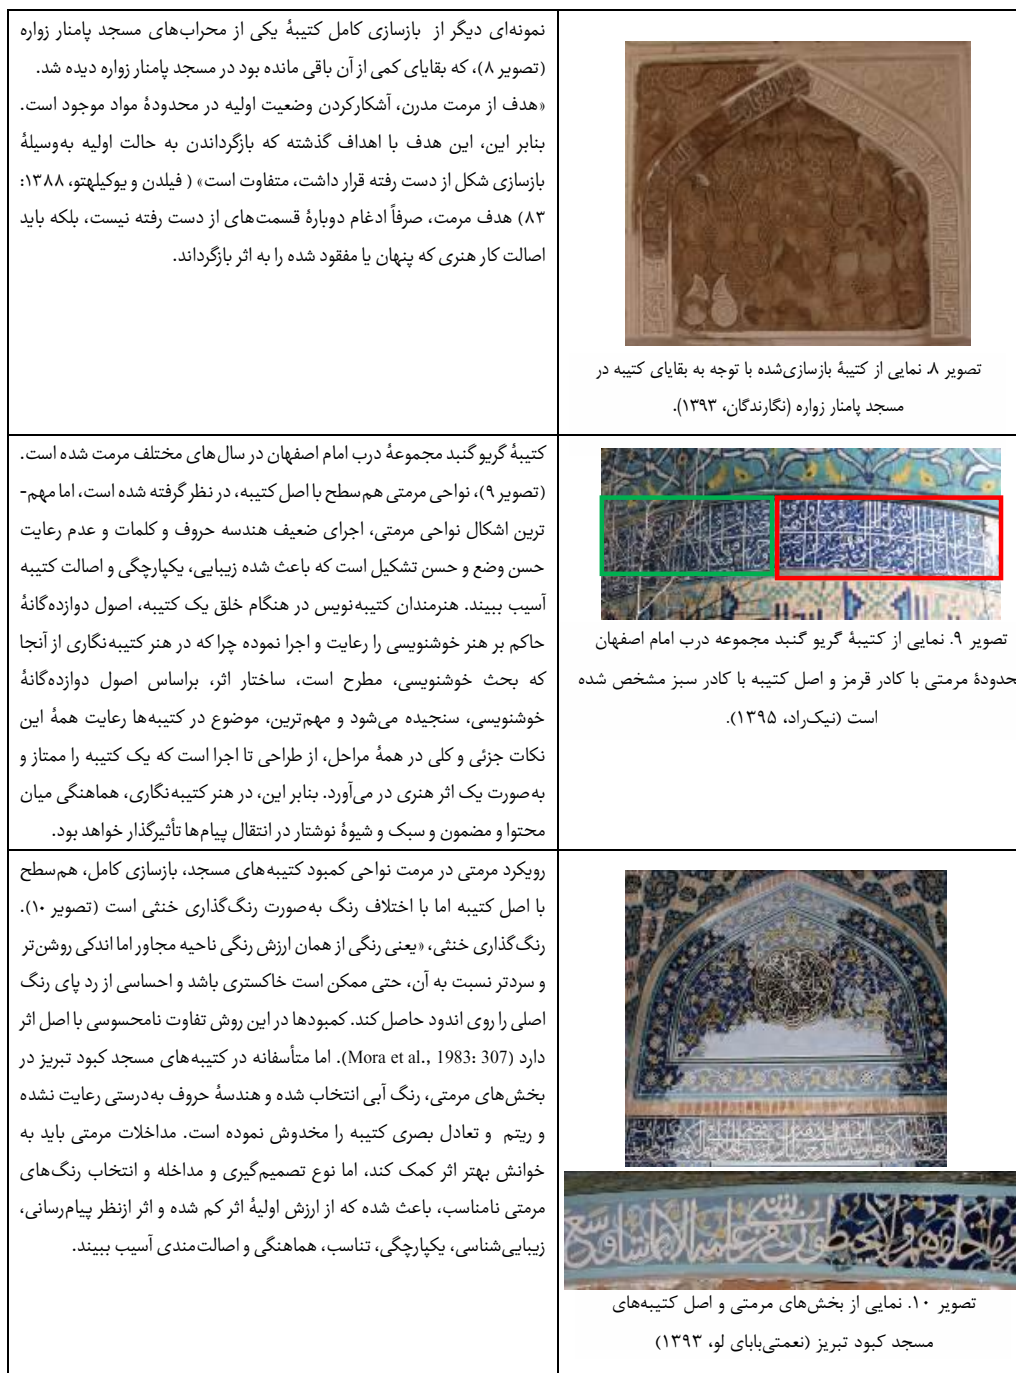 نمونه‌ای دیگر از بازسازی کامل کتیبهٔ یکی از محراب‌های مسجد پامنار زواره
(تصویر ۸)، که بقایای کمی از آن باقی مانده بود در مسجد پامنار زواره دیده شد.
«هدف از مرمت مدرن، آشکارکردن وضعیت اولیه در محدودهٔ مواد موجود است.
بنابر این، این هدف با اهداف گذشته که بازگرداندن به حالت اولیه به‌وسیلهٔ
بازسازی شکل از دست رفته قرار داشت، متفاوت است» ( فیلدن و یوکیلهتو، ۱۳۸۸:
۸۳) هدف مرمت، صرفاً ادغام دوبارهٔ قسمت‌های از دست رفته نیست، بلکه باید
اصالت کار هنری که پنهان یا مفقود شده را به اثر بازگرداند.
تصویر ۸. نمایی از کتیبهٔ بازسازی‌شده با توجه به بقایای کتیبه در
مسجد پامنار زواره (نگارندگان، ۱۳۹۳).
کتیبهٔ گریو گنبد مجموعهٔ درب امام اصفهان در سال‌های مختلف مرمت شده است.
(تصویر ۹)، نواحی مرمتی هم‌سطح با اصل کتیبه، در نظر گرفته شده است، اما مهم-
ترین اشکال نواحی مرمتی، اجرای ضعیف هندسه حروف و کلمات و عدم رعایت
حسن وضع و حسن تشکیل است که باعث شده زیبایی، یکپارچگی و اصالت کتیبه
آسیب ببیند. هنرمندان کتیبه‌نویس در هنگام خلق یک کتیبه، اصول دوازده‌گانهٔ
حاکم بر هنر خوشنویسی را رعایت و اجرا نموده چرا که در هنر کتیبه‌نگاری از آنجا
که بحث خوشنویسی، مطرح است، ساختار اثر، براساس اصول دوازده‌گانهٔ
خوشنویسی، سنجیده می‌شود و مهم‌ترین، موضوع در کتیبه‌ها رعایت همهٔ این
نکات جزئی و کلی در همهٔ مراحل، از طراحی تا اجرا است که یک کتیبه را ممتاز و
به‌صورت یک اثر هنری در می‌آورد. بنابر این، در هنر کتیبه‌نگاری، هماهنگی میان
محتوا و مضمون و سبک و شیوهٔ نوشتار در انتقال پیام‌ها تأثیرگذار خواهد بود.
تصویر ۹. نمایی از کتیبهٔ گریو گنبد مجموعه درب امام اصفهان
حدودهٔ مرمتی با کادر قرمز و اصل کتیبه با کادر سبز مشخص شده
است (نیک‌راد، ۱۳۹۵).
رویکرد مرمتی در مرمت نواحی کمبود کتیبه‌های مسجد، بازسازی کامل، هم‌سطح
با اصل کتیبه اما با اختلاف رنگ به‌صورت رنگ‌گذاری خنثی است (تصویر ۱۰).
رنگ‌گذاری خنثی، «یعنی رنگی از همان ارزش رنگی ناحیه مجاور اما اندکی روشن‌تر
و سردتر نسبت به آن، حتی ممکن است خاکستری باشد و احساسی از رد پای رنگ
اصلی را روی اندود حاصل کند. کمبودها در این روش تفاوت نامحسوسی با اصل اثر
دارد (Mora et al., 1983: 307). اما متأسفانه در کتیبه‌های مسجد کبود تبریز در
بخش‌های مرمتی، رنگ آبی انتخاب شده و هندسهٔ حروف به‌درستی رعایت نشده
و ریتم و تعادل بصری کتیبه را مخدوش نموده است. مداخلات مرمتی باید به
خوانش بهتر اثر کمک کند، اما نوع تصمیم‌گیری و مداخله و انتخاب رنگ‌های
مرمتی نامناسب، باعث شده که از ارزش اولیهٔ اثر کم شده و اثر ازنظر پیام‌رسانی،
زیبایی‌شناسی، یکپارچگی، تناسب، هماهنگی و اصالت‌مندی آسیب ببیند.
تصویر ۱۰. نمایی از بخش‌های مرمتی و اصل کتیبه‌های
مسجد کبود تبریز (نعمتی‌بابای لو، ۱۳۹۳)